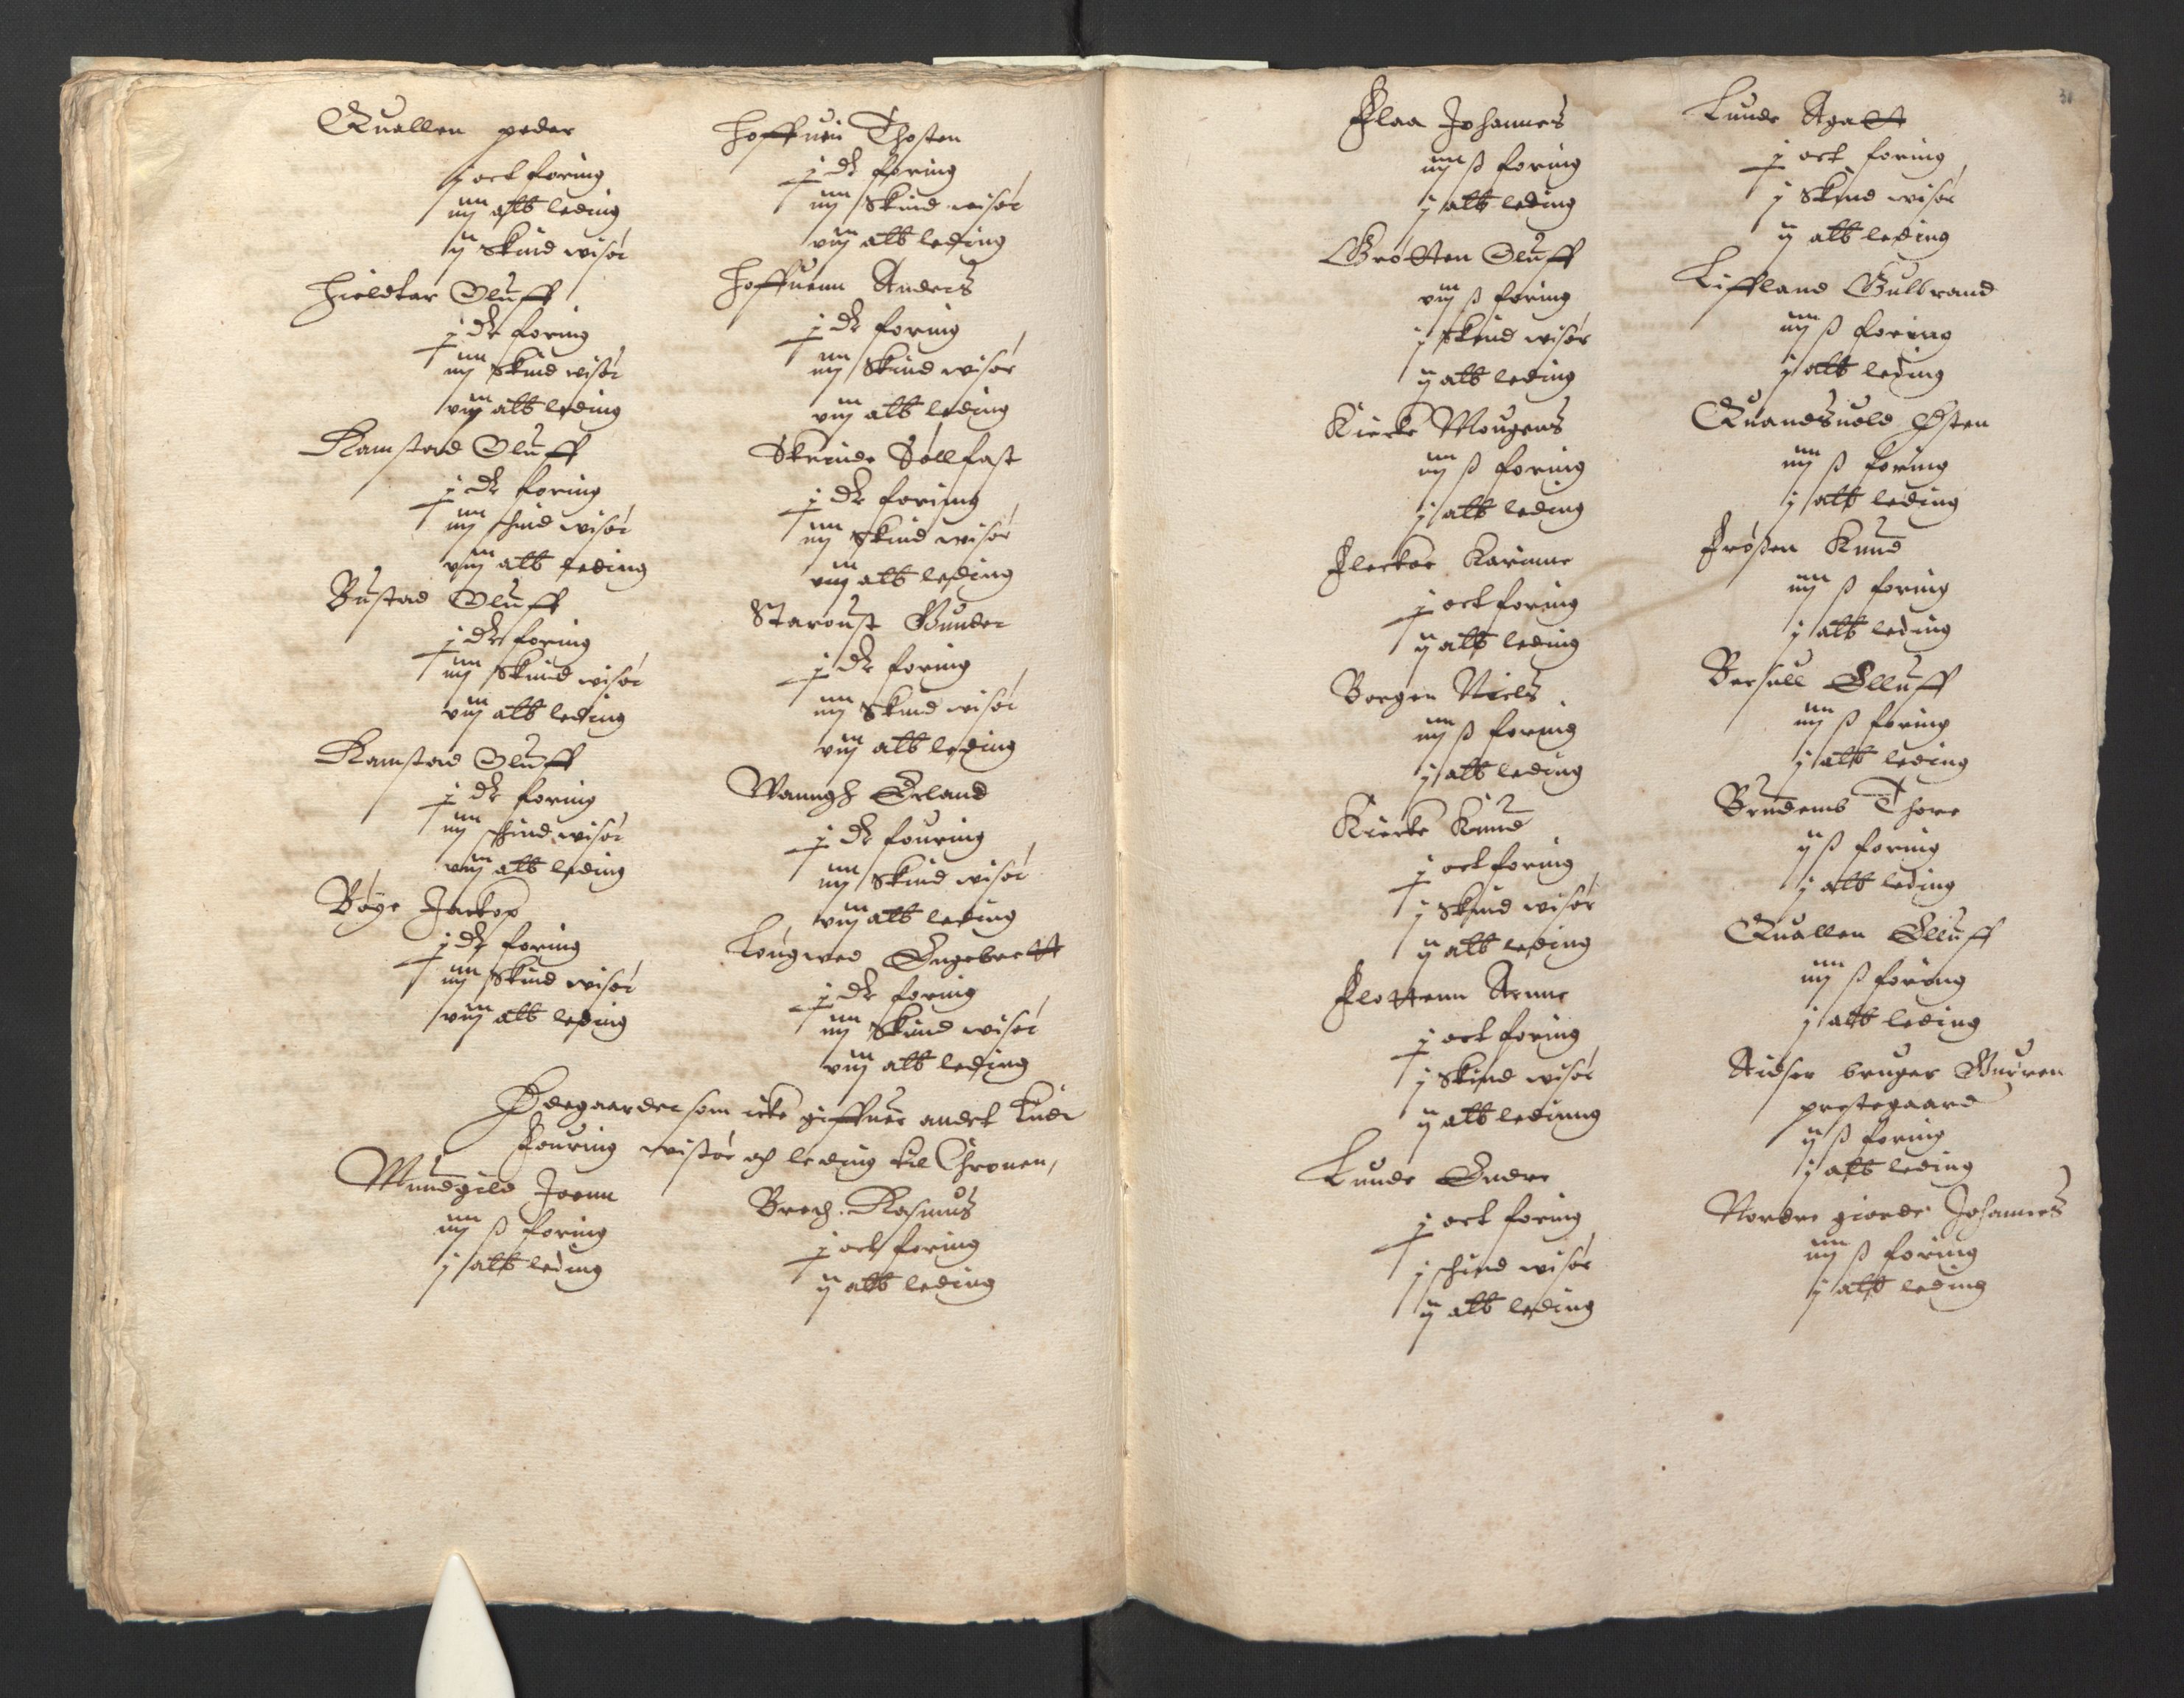 Quallen peder
j ort foring
iiij alb leding
ij Skind wisør
Hieldtar Oluff
j dr foring
iiij Skind wisør
viij alb leding
Ramstad Oluff
j dr foring
iiij schind wisør
viij alb leding
Bustad Oluff
j dr foring
iiij Skind wisør
viij alb leding
Ramstad Oluff
j dr foring
iiij schind wisør
viij alb leding
Bøye Jackop
j dr foring
iiij Skind wisør
viij alb leding
Hoffuin Thosten
j dr foring
iiij Skind wisør
viij alb leding
Hoffuenn Anders
j dr foring
iiij Skind wisør
viij alb leding
Skrinde Søllfast
j dr foring
iiij Skind wisør
viij alb leding
Staroust Gunder
j dr foring
iiij Skind wisør
viij alb leding
Wanngh Erland
j dr fouring
iiij Skind wisør
viij alb leding
Lougwed Engebrett
j dr foring
iiij Skind wisør
viij alb leding
Ødegaarder som icke giffuer andet Vden
fouring wissøre och leding til Chronen,
Mundgild Joenn
iiij ß foring
j alb leding
Brech Rasmus
j ort foring
ij alb leding
Flaa Johannes
iiij ß foring
j alb leding
Grøtten Oluff
viij ß foring
j Skind wisør
ij alb leding
Kircke Mougens
iiij ß foring
j alb leding
Flecker Karinne
j ort foring
ij alb leding
Borgen Niels
iiij ß foring
j alb leding
Kircke Knud
j ort foring
j Skind wisør
ij alb leding
Flottenn Arnne
j ort foring
j Skind wisør
ij alb ledinng
Lunde Endre
j ort foring
j schind wisør
ij alb leding
30
Lunde Agatt
j ort foring
j Skind wisør
ij alb leding
Liffland Gulbrand
iiij ß foring
j alb leding
Quandsuold Østen
iiij ß foring
j alb leding
Frøsen Knud
iiij ß foring
j alb leding
Bersull Elluff
iiij ß foring
j alb leding
Brudemb Thore
ij ß foring
j alb leding
Quallen Elluff
iiij ß foring
j alb leding
Aidser bruger Gurren
prestegaard
ij ß foring
j alb leding
Nordre giorde Johannes
iiij ß foring
j alb leding